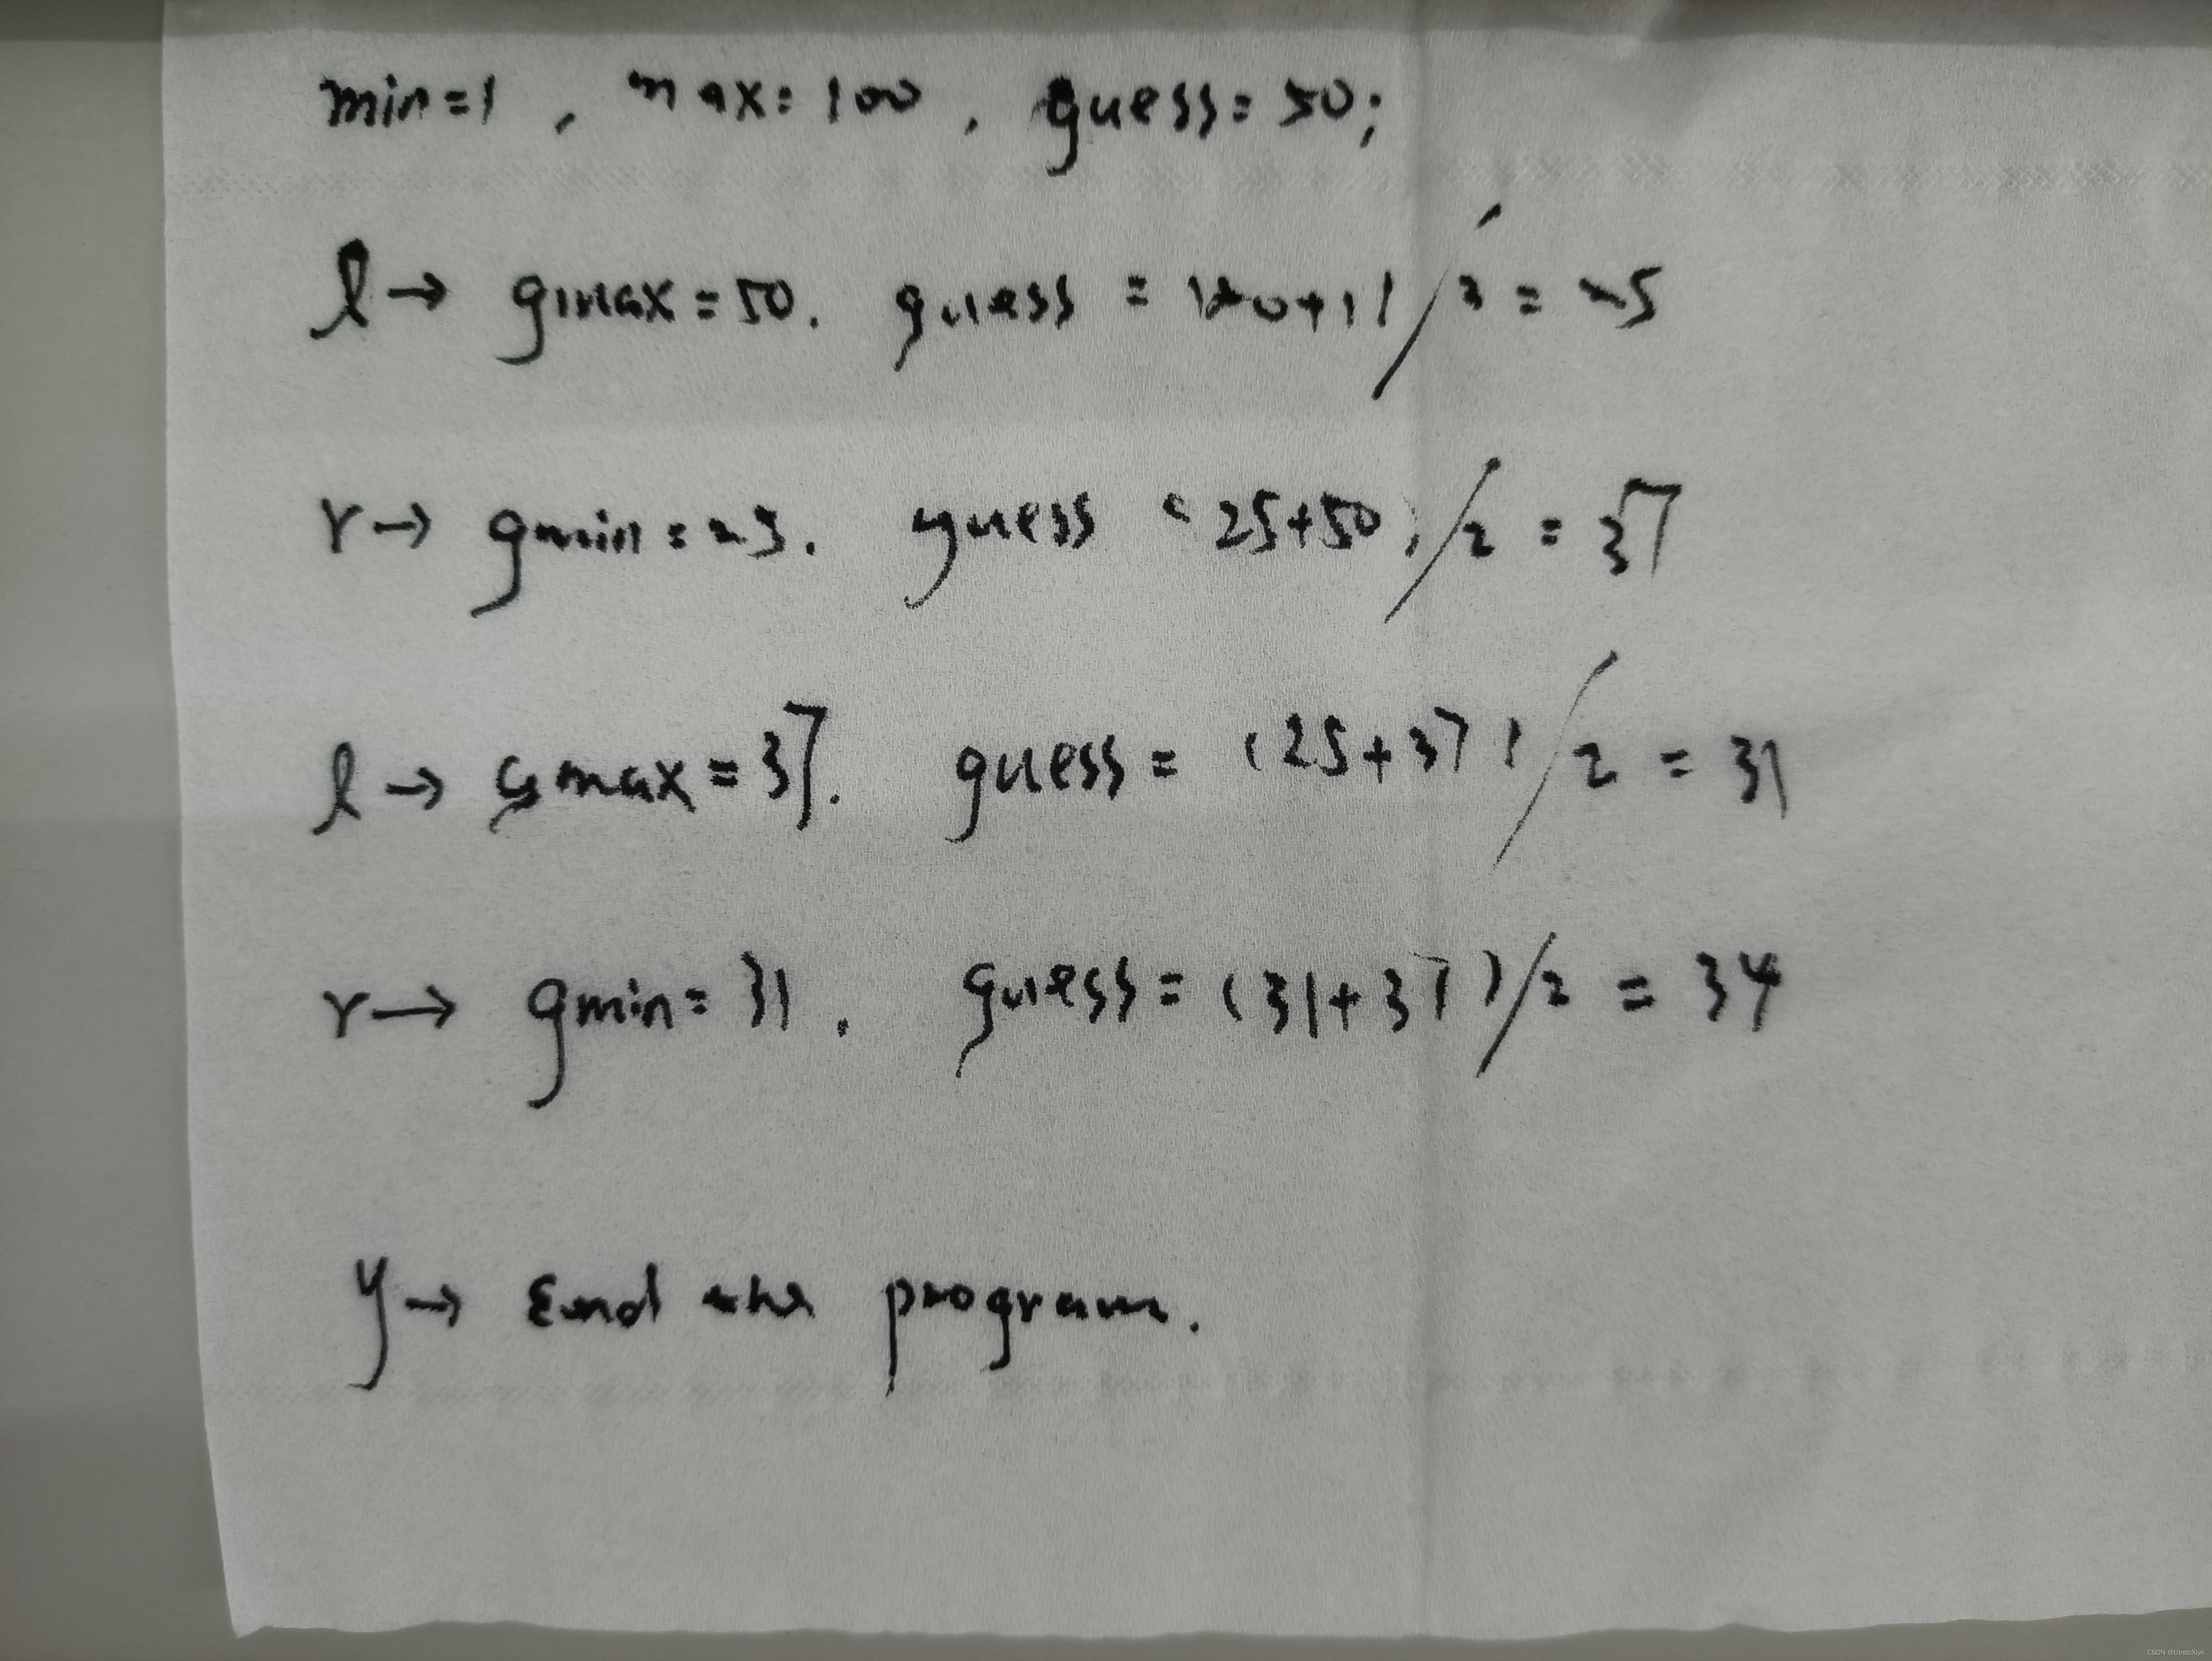 min=1, max=100, guess=50;
l→ gmax=50. guess = (50+1)/2 = 25
r→ gmin=25. guess (25+50)/2 = 37
l→ gmax=37. guess= (25+37)/2 = 31
r→ gmin=31. guess=(31+37)/2 = 34
y→ End the program.
CSDN @UestcXiye